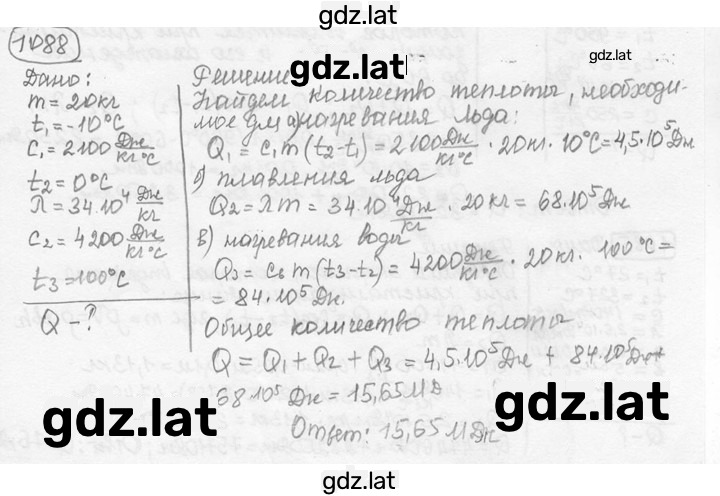 gdz.lat
1088
gdz.lat
gdz.lat
Дано:
m = 20 кг
t₁ = -10°C
c₁ = 2100 Дж/кг°C
t₂ = 0°C
λ = 34·10⁴ Дж/кг
c₂ = 4200 Дж/кг°C
t₃ = 100°C
Q - ?
Решение
Найдем количество теплоты, необходи-
мое для а) нагревания льда:
Q₁ = c₁m(t₂-t₁) = 2100 Дж/кг°C · 20кг · 10°C = 4,5·10⁵ Дж
б) плавления льда
Q₂ = λm = 34·10⁴ Дж/кг · 20кг = 68·10⁵ Дж
в) нагревания воды
Q₃ = cвm(t₃-t₂) = 4200 Дж/кг°C · 20кг · 100°C =
= 84·10⁵ Дж.
Общее количество теплоты
Q = Q₁ + Q₂ + Q₃ = 4,5·10⁵ Дж + 84·10⁵ Дж +
68·10⁵ Дж = 15,65 МД
gdz.lat
gdz.lat
Ответ: 15,65 МДж
gdz.lat